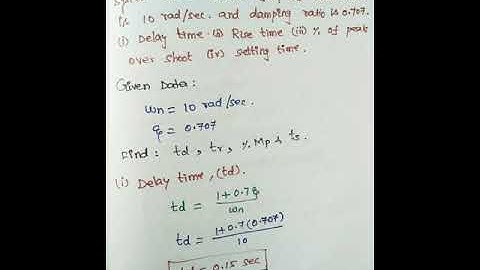 is 10 rad/sec. and damping ratio is 0.707.
(i) Delay time (ii) Rise time (iii) % of peak
over shoot (iv) setting time.
Given Data:
ωn = 10 rad/sec.
ξ = 0.707
Find: td, tr, % Mp & ts.
(i) Delay time, (td).
td = 1+0.7ξ / ωn
td = 1+0.7(0.707) / 10
= 0.15 sec